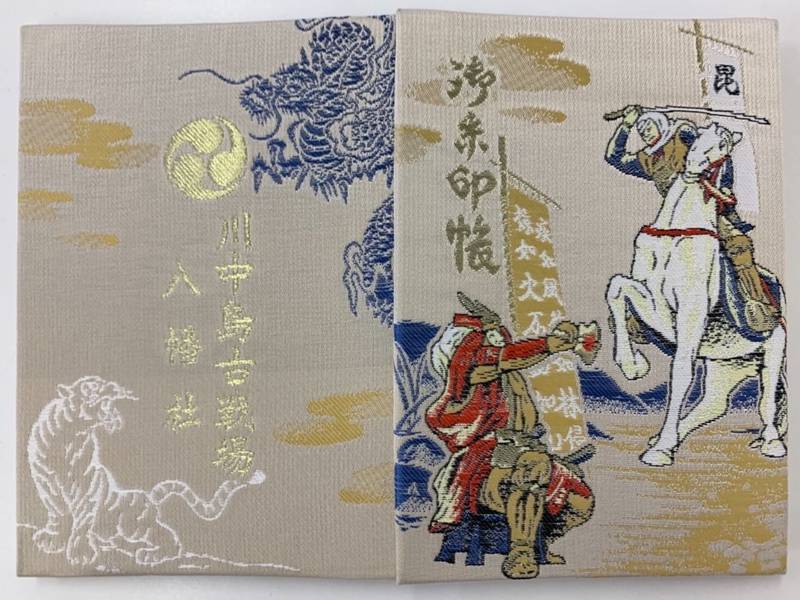 毘
御朱印帳
疾如風徐如林侵
掠如火不動如山
川中島古戦場
八幡社